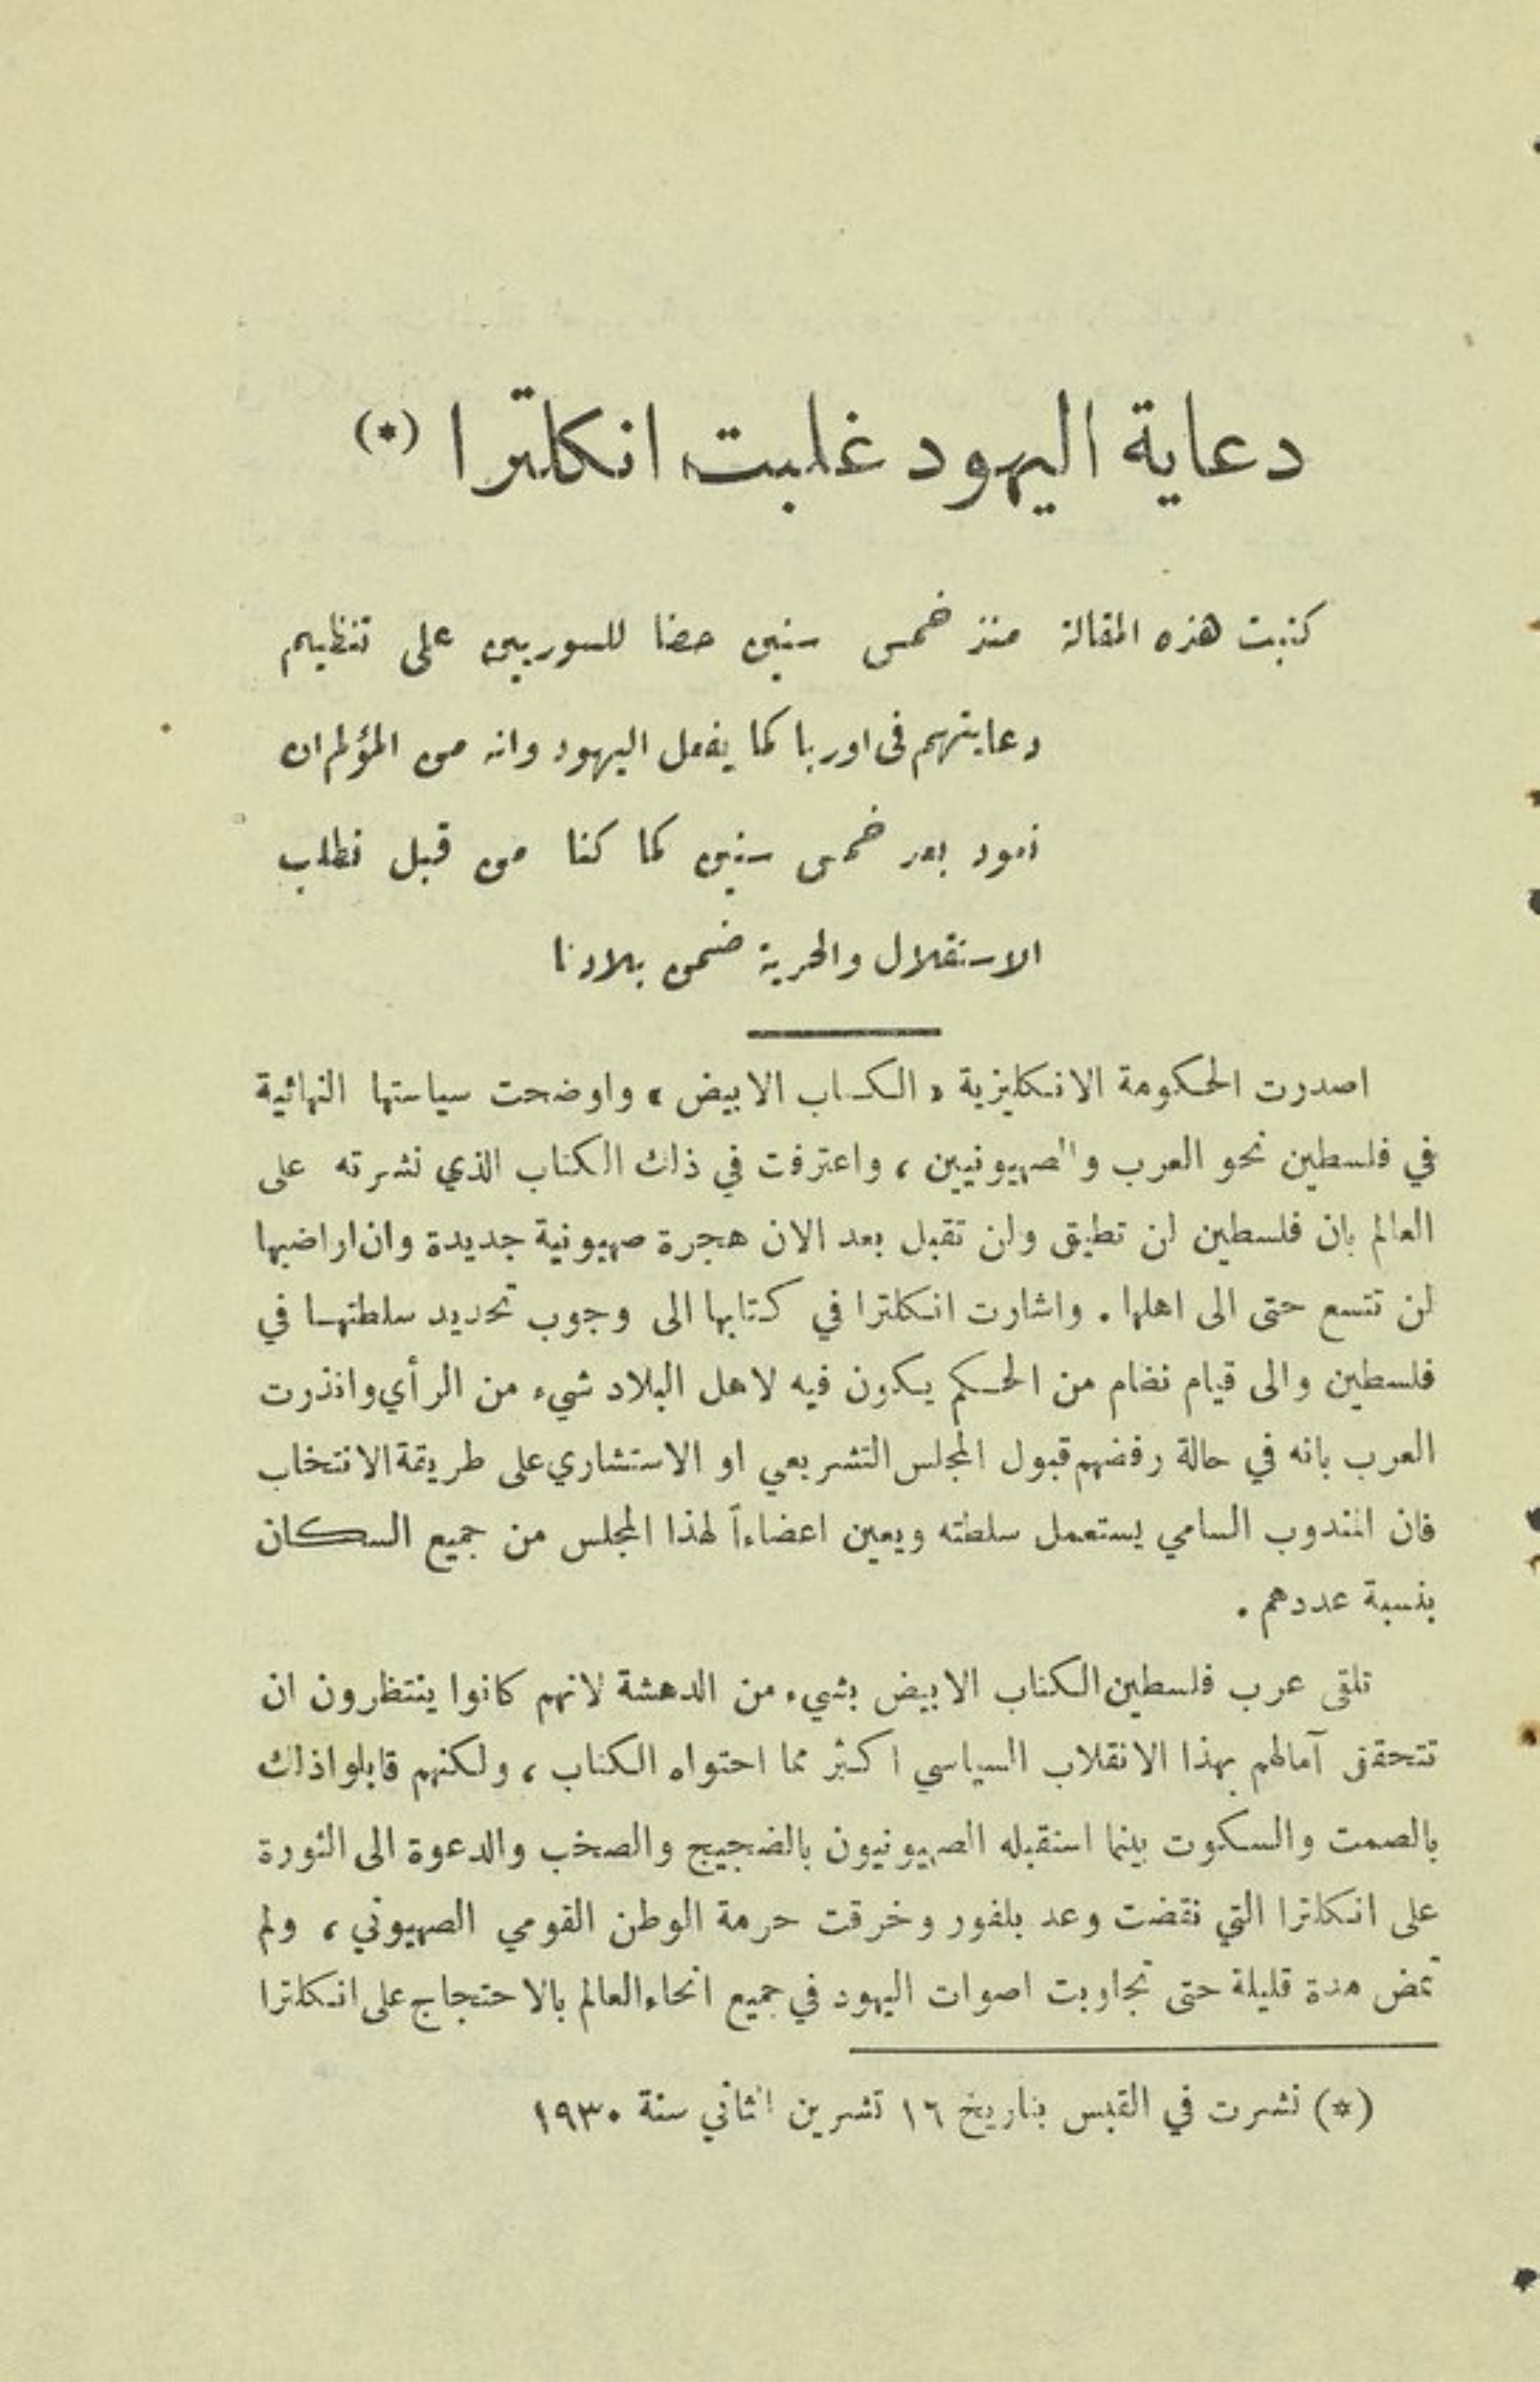 دعاية اليهود غلبت انكلترا (*)
كتبت هذه المقالة منذ خمس سنين حضا للسوريين على تنظيم
دعايتهم في اوربا كما يفعل اليهود وانه من المؤلم ان
نعود بعد خمس سنين كما كنا من قبل نطلب
الاستقلال والحرية ضمن بلادنا
اصدرت الحكومة الانكليزية « الكتاب الابيض » واوضحت سياستها النهائية
في فلسطين نحو العرب والصهيونيين ، واعترفت في ذلك الكتاب الذي نشرته على
العالم بان فلسطين لن تطيق ولن تقبل بعد الان هجرة صهيونية جديدة وان اراضيها
لن تتسع حتى الى اهلها . واشارت انكلترا في كتابها الى وجوب تحديد سلطتها في
فلسطين والى قيام نظام من الحكم يكون فيه لاهل البلاد شيء من الرأي وانذرت
العرب بانه في حالة رفضهم قبول المجلس التشريعي او الاستشاري على طريقة الانتخاب
فان المندوب السامي يستعمل سلطته ويعين اعضاءاً لهذا المجلس من جميع السكان
بنسبة عددهم .
تلقى عرب فلسطين الكتاب الابيض بشيء من الدهشة لانهم كانوا ينتظرون ان
تتحقق آمالهم بهذا الانقلاب السياسي اكثر مما احتواه الكتاب ، ولكنهم قابلوا ذلك
بالصمت والسكوت بينما استقبله الصهيونيون بالضجيج والصخب والدعوة الى الثورة
على انكلترا التي نقضت وعد بلفور وخرقت حرمة الوطن القومي الصهيوني ، ولم
تمض مدة قليلة حتى تجاوبت اصوات اليهود في جميع انحاء العالم بالاحتجاج على انكلترا
(*) نشرت في القبس بتاريخ ١٦ تشرين الثاني سنة ١٩٣٠